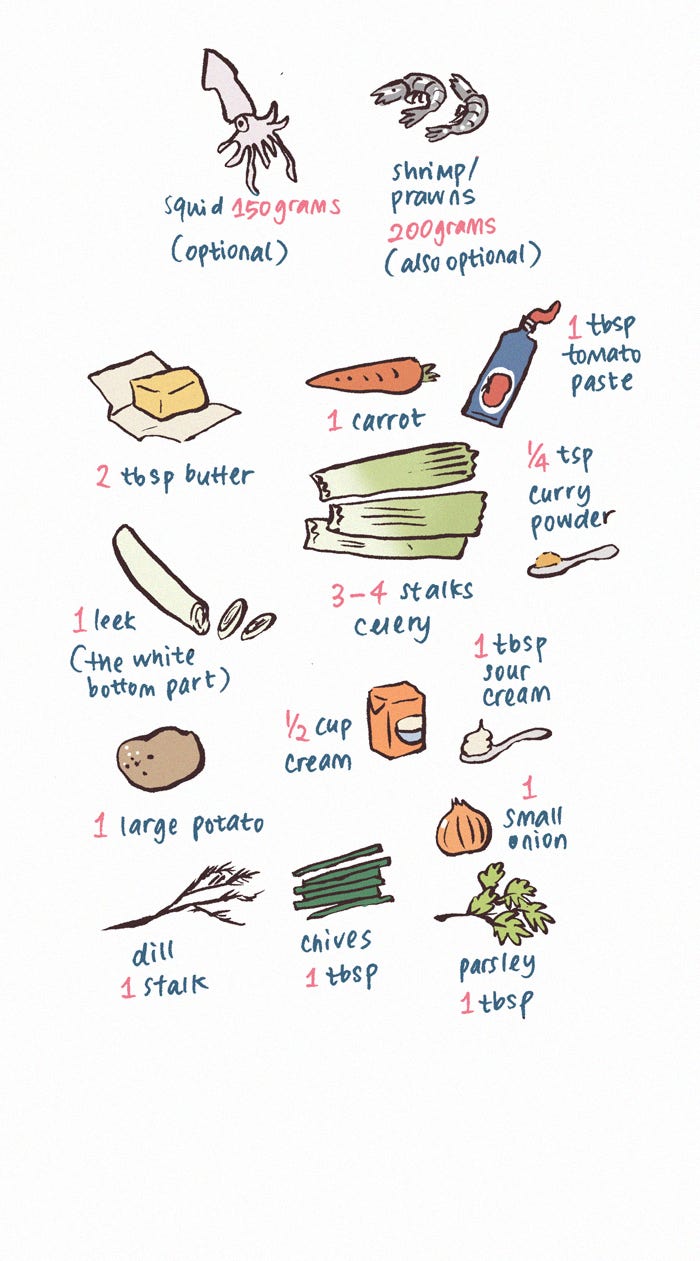 squid 150grams
(optional)
shrimp/
prawns
200grams
(also optional)
1 tbsp
tomato
paste
2 tbsp butter
1 carrot
1/4 tsp
curry
powder
1 leek
(the white
bottom part)
3-4 stalks
celery
1 tbsp
sour
cream
1/2 cup
cream
1 large potato
1
small
onion
dill
1 stalk
chives
1 tbsp
parsley
1 tbsp